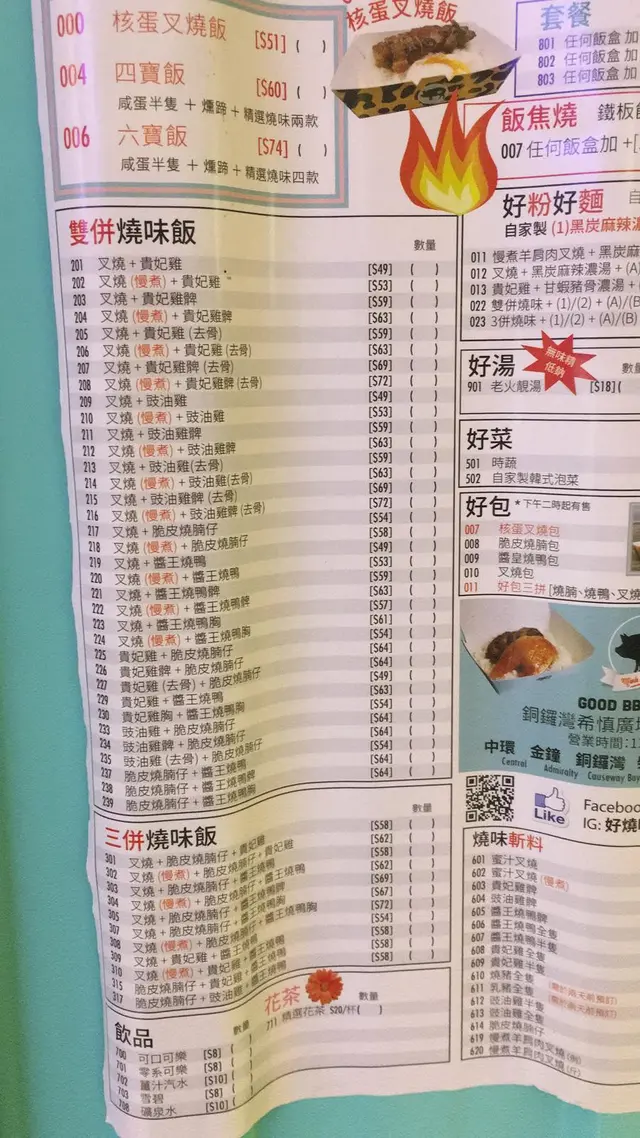 000 核蛋叉燒飯 [$51] ( )
004 四寶飯 [$60] ( )
咸蛋半隻 + 燻蹄 + 精選燒味兩款
006 六寶飯 [$74] ( )
咸蛋半隻 + 燻蹄 + 精選燒味四款
核蛋叉燒飯
套餐
801 任何飯盒 加
802 任何飯盒 加
803 任何飯盒 加
飯焦燒 鐵板
007 任何飯盒加 +[
好粉好麵
自家製 (1)黑炭麻辣
011 慢煮羊肩肉叉燒 + 黑炭麻
012 叉燒 + 黑炭麻辣濃湯 + (A)
013 貴妃雞 + 甘蝦豬骨濃湯 +
022 雙併燒味 + (1)/(2) + (A)/(B)
023 3併燒味 + (1)/(2) + (A)/(B)
好湯
無味精
低鈉
901 老火靚湯 [$18] (
好菜
501 時蔬
502 自家製韓式泡菜
好包 *下午二時起有售
007 核蛋叉燒包
008 脆皮燒腩包
009 醬皇燒鴨包
010 叉燒包
011 好包三拼 [燒腩、燒鴨、叉燒
GOOD BB
銅鑼灣希慎廣
營業時間:1
中環 金鐘 銅鑼灣
Central Admiralty Causeway Bay
Like
Facebook
IG: 好燒
雙併燒味飯 數量
201 叉燒 + 貴妃雞 [$49] ( )
202 叉燒 (慢煮) + 貴妃雞 [$53] ( )
203 叉燒 + 貴妃雞髀 [$59] ( )
204 叉燒 (慢煮) + 貴妃雞髀 [$63] ( )
205 叉燒 + 貴妃雞 (去骨) [$59] ( )
206 叉燒 (慢煮) + 貴妃雞 (去骨) [$63] ( )
207 叉燒 + 貴妃雞髀 (去骨) [$69] ( )
208 叉燒 (慢煮) + 貴妃雞髀 (去骨) [$72] ( )
209 叉燒 + 豉油雞 [$49] ( )
210 叉燒 (慢煮) + 豉油雞 [$53] ( )
211 叉燒 + 豉油雞髀 [$59] ( )
212 叉燒 (慢煮) + 豉油雞髀 [$63] ( )
213 叉燒 + 豉油雞(去骨) [$59] ( )
214 叉燒 (慢煮) + 豉油雞(去骨) [$63] ( )
215 叉燒 + 豉油雞髀 (去骨) [$69] ( )
216 叉燒 (慢煮) + 豉油雞髀 (去骨) [$72] ( )
217 叉燒 + 脆皮燒腩仔 [$54] ( )
218 叉燒 (慢煮) + 脆皮燒腩仔 [$58] ( )
219 叉燒 + 醬王燒鴨 [$49] ( )
220 叉燒 (慢煮) + 醬王燒鴨 [$53] ( )
221 叉燒 + 醬王燒鴨髀 [$59] ( )
222 叉燒 (慢煮) + 醬王燒鴨髀 [$63] ( )
223 叉燒 + 醬王燒鴨胸 [$57] ( )
224 叉燒 (慢煮) + 醬王燒鴨胸 [$61] ( )
225 貴妃雞 + 脆皮燒腩仔 [$54] ( )
226 貴妃雞髀 + 脆皮燒腩仔 [$64] ( )
227 貴妃雞 (去骨) + 脆皮燒腩仔 [$64] ( )
229 貴妃雞 + 醬王燒鴨 [$49] ( )
230 貴妃雞胸 + 醬王燒鴨胸 [$63] ( )
233 豉油雞 + 脆皮燒腩仔 [$54] ( )
234 豉油雞髀 + 脆皮燒腩仔 [$64] ( )
235 豉油雞 (去骨) + 脆皮燒腩仔 [$64] ( )
237 脆皮燒腩仔 + 醬王燒鴨 [$54] ( )
238 脆皮燒腩仔 + 醬王燒鴨髀 [$64] ( )
239 脆皮燒腩仔 + 醬王燒鴨胸 [$64] ( )
三併燒味飯 數量
301 叉燒 + 脆皮燒腩仔 + 貴妃雞 [$58] ( )
302 叉燒 (慢煮) + 脆皮燒腩仔 + 貴妃雞 [$62] ( )
303 叉燒 + 脆皮燒腩仔 + 醬王燒鴨 [$58] ( )
304 叉燒 (慢煮) + 脆皮燒腩仔 + 醬王燒鴨 [$62] ( )
305 叉燒 + 脆皮燒腩仔 + 醬王燒鴨髀 [$69] ( )
307 叉燒 + 脆皮燒腩仔 + 醬王燒鴨胸 [$67] ( )
308 叉燒 (慢煮) + 脆皮燒腩仔 + 醬王燒鴨胸 [$72] ( )
309 叉燒 + 貴妃雞 + 醬王燒鴨 [$54] ( )
310 叉燒 (慢煮) + 貴妃雞 + 醬王燒鴨 [$58] ( )
315 脆皮燒腩仔 + 貴妃雞 + 醬王燒鴨 [$58] ( )
317 脆皮燒腩仔 + 豉油雞 + 醬王燒鴨 [$58] ( )
花茶 數量
711 精選花茶 $20/杯( )
飲品 數量
700 可口可樂 [$8] ( )
701 零系可樂 [$8] ( )
702 薑汁汽水 [$10] ( )
703 雪碧 [$8] ( )
708 礦泉水 [$10] ( )
燒味斬料
601 蜜汁叉燒
602 蜜汁叉燒 (慢煮)
603 貴妃雞髀
604 豉油雞髀
605 醬王燒鴨髀
606 醬王燒鴨全隻
607 醬王燒鴨半隻
608 貴妃雞全隻
609 貴妃雞半隻
610 燒豬全隻
611 乳豬全隻
612 豉油雞半隻
613 豉油雞全隻
614 脆皮燒腩仔
619 慢煮羊肩肉叉燒 (例)
620 慢煮羊肩肉叉燒 (斤)